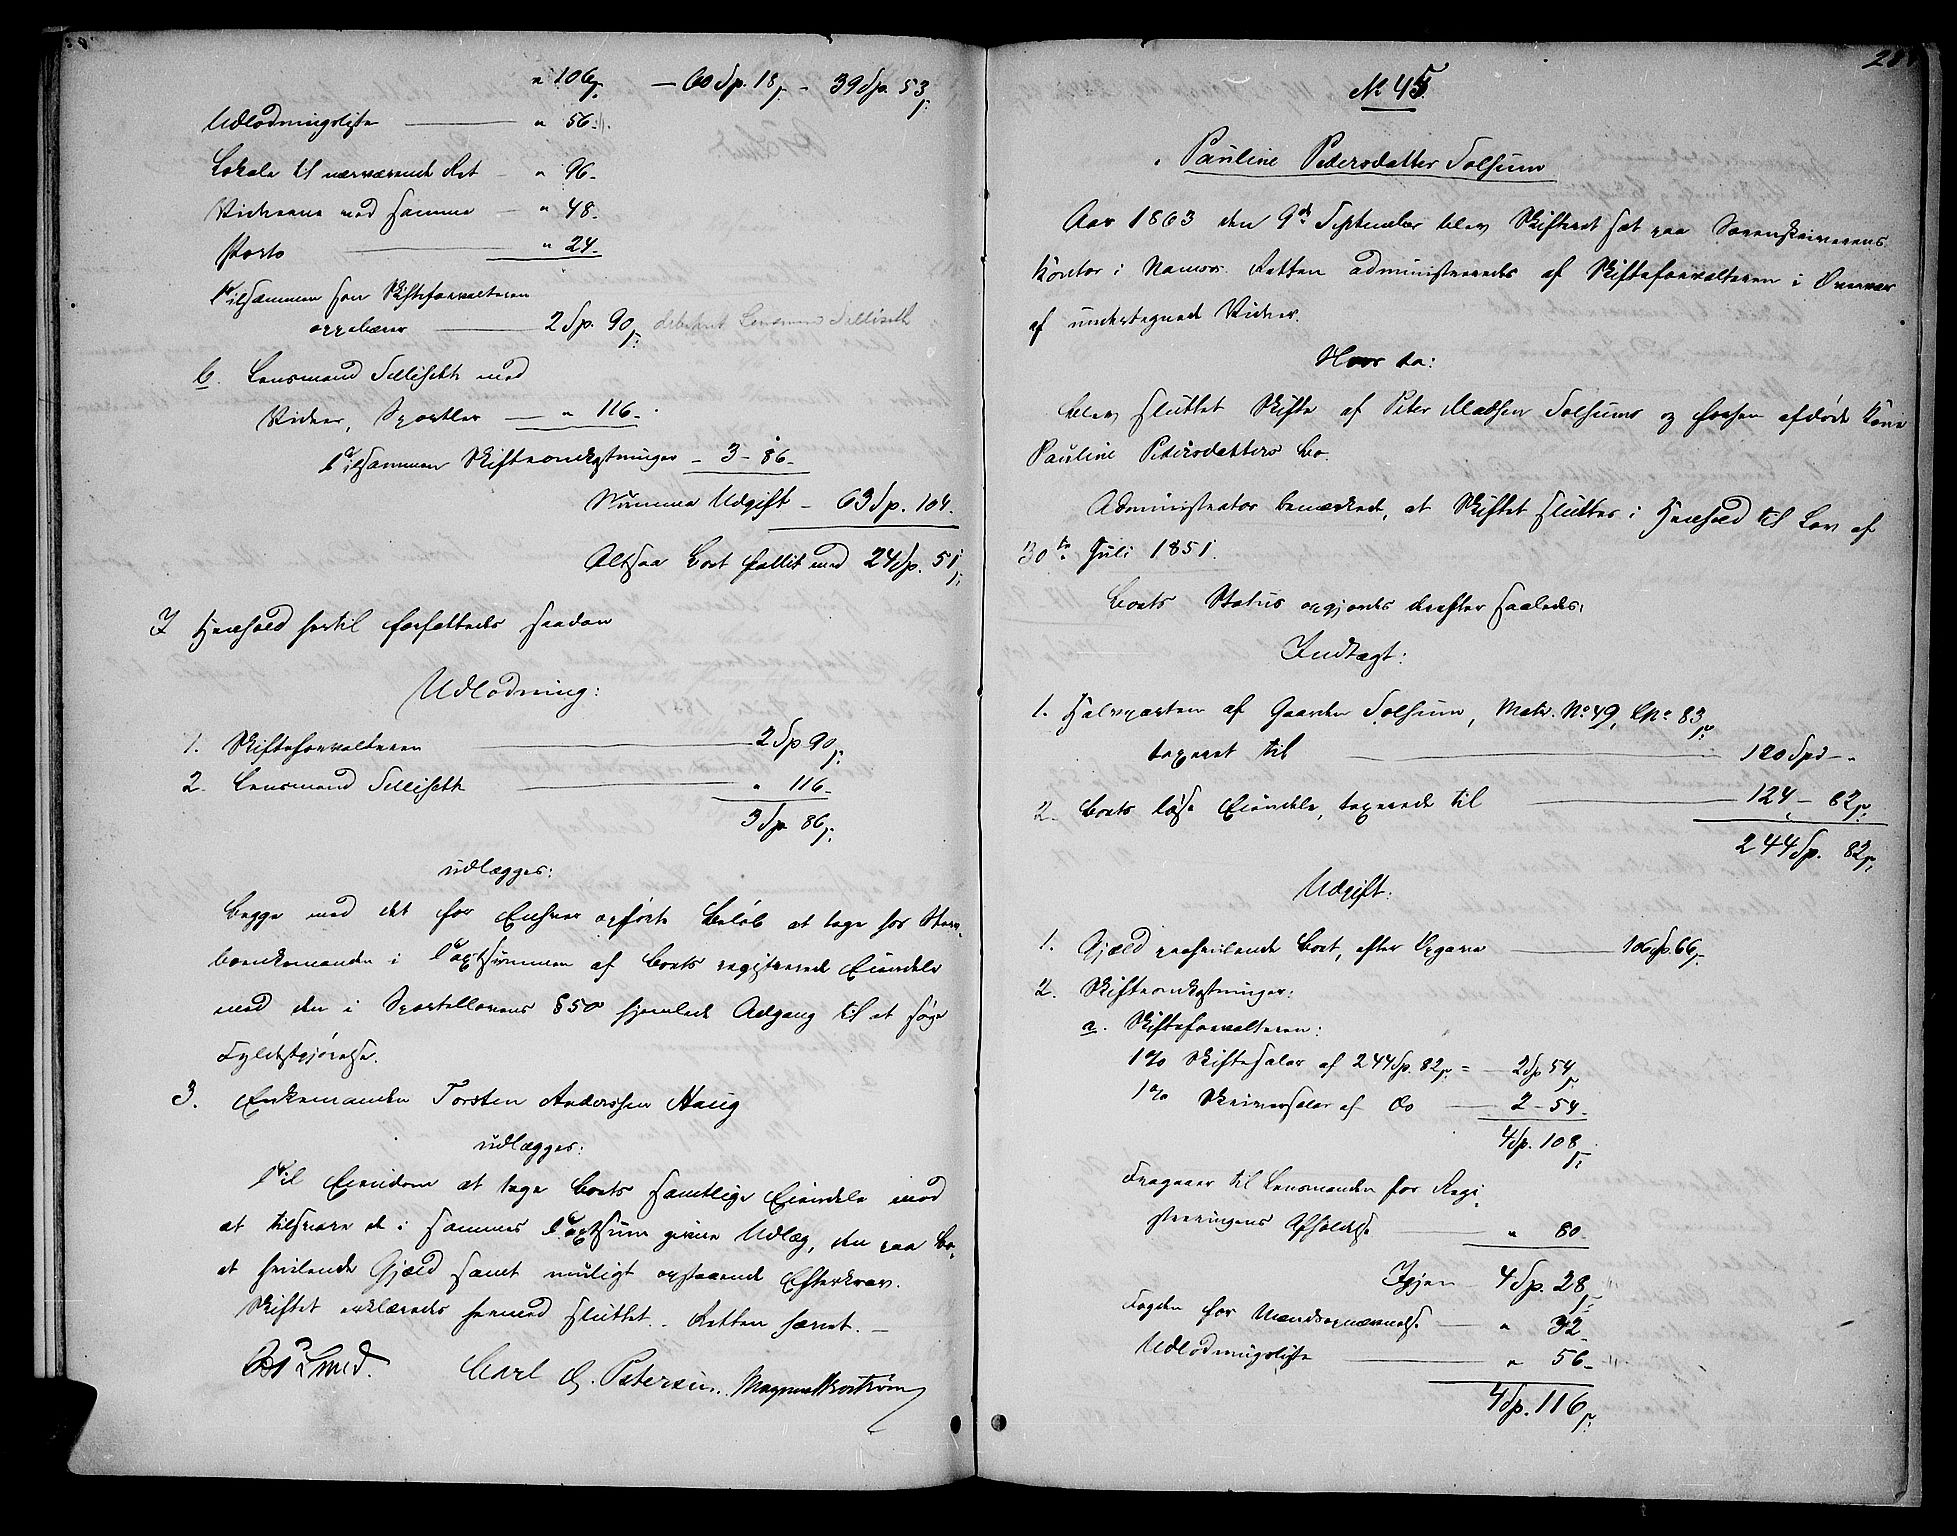 " 106 ß. — 60 Sp. 18 ß. - 39 Sp. 53 ß.
Udlodningsliste — " 56 -
Lokale til nærværende Ret - " 96 -
Vidnerne ved samme — " 48 -
Porto — " 24 -
Tilsammen som Skifteforvalteren
oppebærer — 2 Sp. 90 ß. Lensmand Selliseth
b. Lensmand Selliseth med
Vidner, Sportler — " 116 -
Tilsammen Skifteomkostninger - 3 - 86 -
Summa Udgift - 63 Sp. 104.
Altsaa Boet fallit med 24 Sp. 51 ß.
I Henhold hertil forfattedes saadan
Udlodning:
1. Skifteforvalteren — 2 Sp. 90 ß.
2. Lensmand Selliseth — " 116 -
3 Sp. 86 ß.
udlægges:
Begge med det for Enhver opførte Beløb at tage hos
i Taxtsummen af Boets registrerede Eiendele
med den i Sportellovens § 50 hjemlede Adgang til at søge
Fyldestgjørelse.
3. Enkemanden Torsten Anderssen Haug
udlægges:
Til Eiendom at tage Boets samtlige Eiendele mod
at tilsvare de i sammes Taxtsum givne Udlæg, den paa Bo-
et hvilende Gjæld samt muligt opstaaende Efterkrav.
Skiftet erklæredes hermed sluttet. - Retten hævet. —
Lund. Carl G. Petersen. Magnus
№ 45
Pauline Pedersdatter Solsum
Aar 1863 den 9de September blev Skifteret sat paa Sorenskriverens
Kontor i Namsos. Retten administreredes af Skifteforvalteren i Overvær
af undertegnede Vidner.
Hvor da:
blev sluttet Skifte af Peter Madsen Solsums og hossen afdøde Kone
Pauline Pedersdatters Bo.
Administrator bemærkede, at Skiftet sluttes i Henhold til Lov af
30te Juli 1851.
Boets Status opgjordes derefter saaledes:
Indtægt:
1. Halvparten af Gaarden Solsum, Matr. No 49, LNo 83,
taxeret til — 120 Spd - "
2. Boets løse Eiendele, taxerede til — 124 - 82 ß.
244 Sp. 82 ß.
Udgift:
1. Gjæld paahvilende Boet, efter Opgave — 106 Sp. 66 ß.
2. Skifteomkostninger:
a. Skifteforvalteren:
1 % Skiftesalær af 244 Sp. 82 ß. = — 2 Sp 54 ß.
1 % Skriversalær af Do — 2 - 54 -
4 Sp. 108 ß.
Fragaaer til Lensmanden for Regi-
streringens Afholdelse — " 80 -
Igjen — 4 Sp. 28 ß.
Fogden for Mændsopnævnelse — " 32 -
Udlodningsliste — " 56 -
4 Sp. 116 ß.